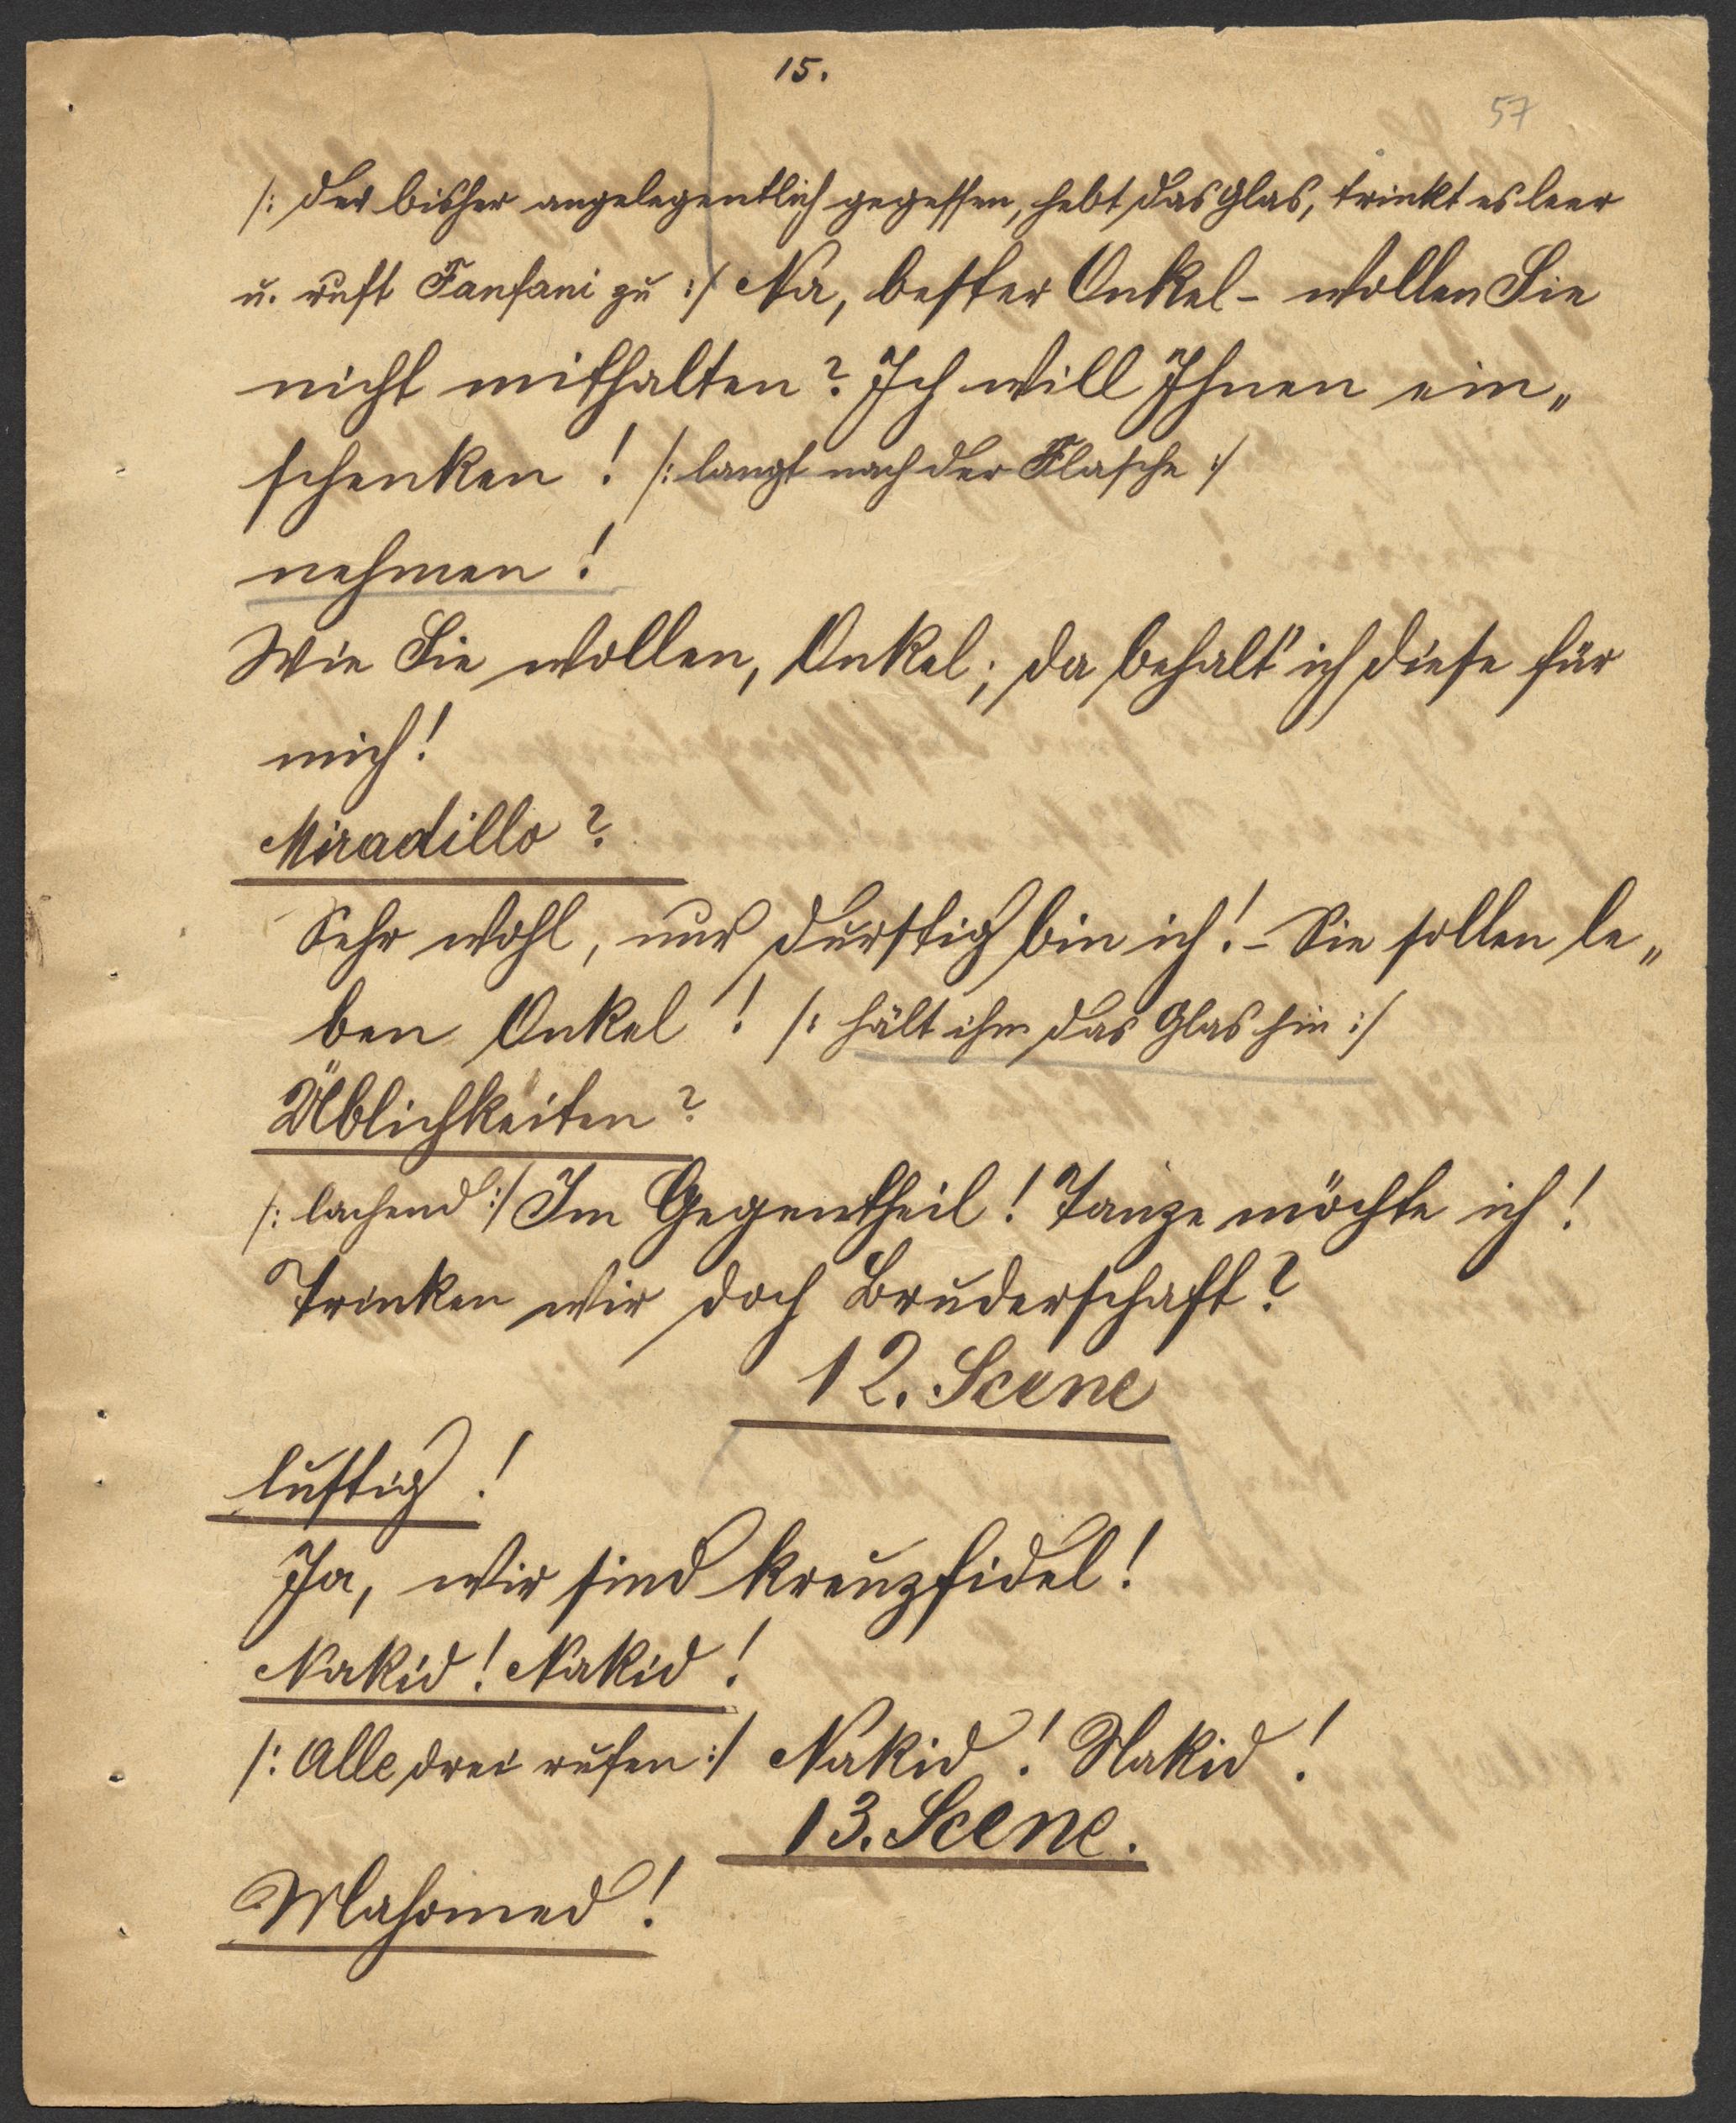 15.
57
/: der bisher angelegentlich gegessen, hebt das Glas, trinkt es leer
u. ruft Fanfani zu :/ Na, bester Onkel - wollen Sie
nicht mithalten? Ich will Ihnen ein„
schenken! /: langt nach der Flasche :/
nehmen!
Wie Sie wollen, Onkel; da behalt' ich diese für
mich!
Miradillo?
Sehr wohl, nur durstig bin ich! - Sie sollen le„
ben Onkel! /: hält ihm das Glas hin :/
Üblichkeiten?
/: lachend :/ Im Gegentheil! Tanze möchte ich!
Trinken wir doch Bruderschaft?
12. Scene
lustig!
Ja, wir sind kreuzfidel!
Nakid! Nakid!
/: Alle drei rufen :/ Nakid! Nakid!
13. Scene.
Mahomed!